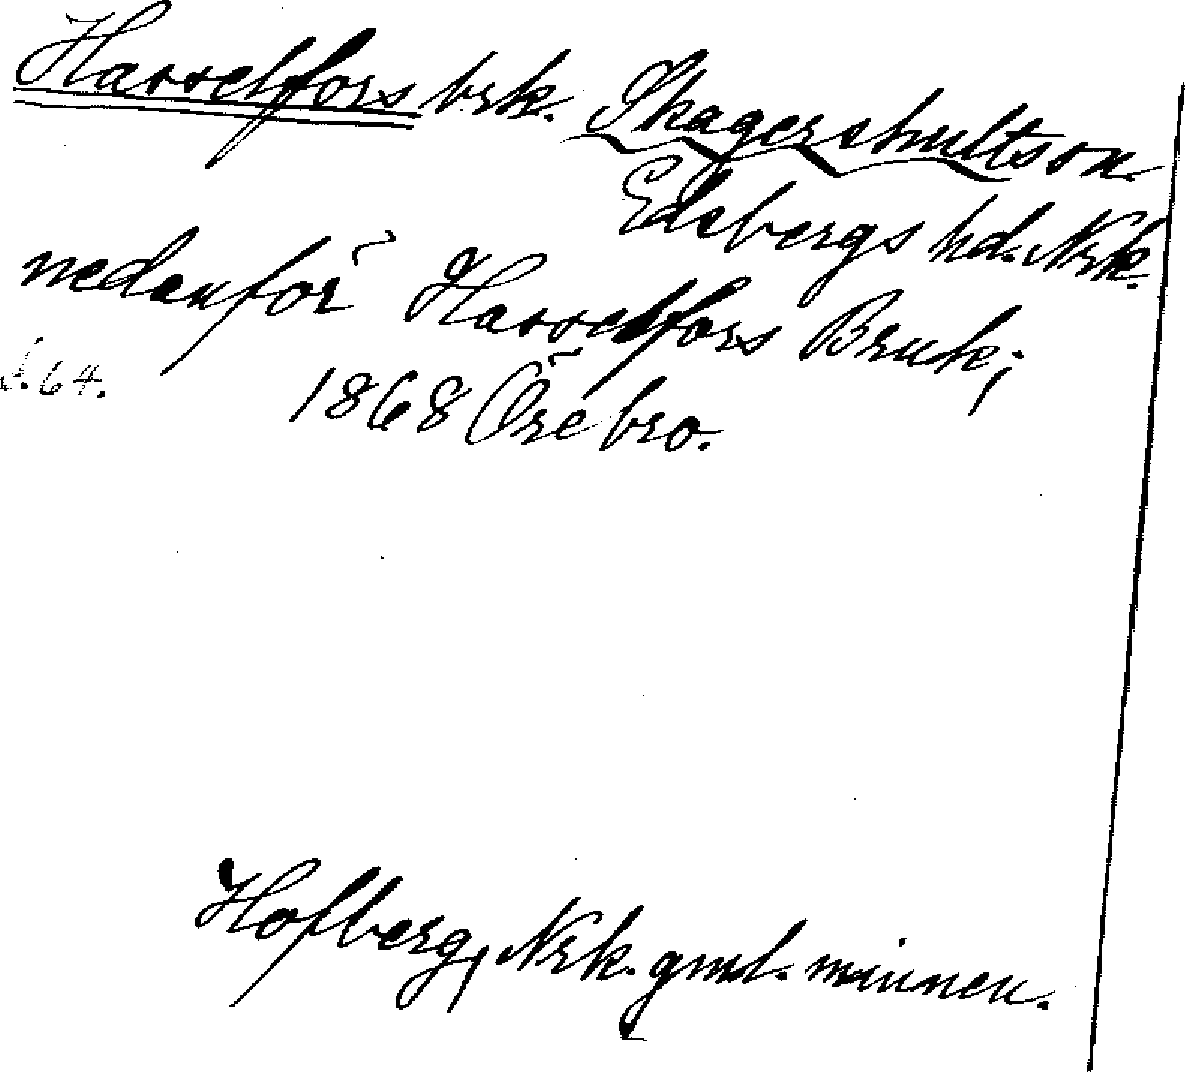 Hasselfors brk. Skagershults sn.
Edsbergs hd. Nrk.
nedanför Hasselfors Bruk;
s. 64. 1868 Örebro.
Hofberg, Nrk. gml. minnen.